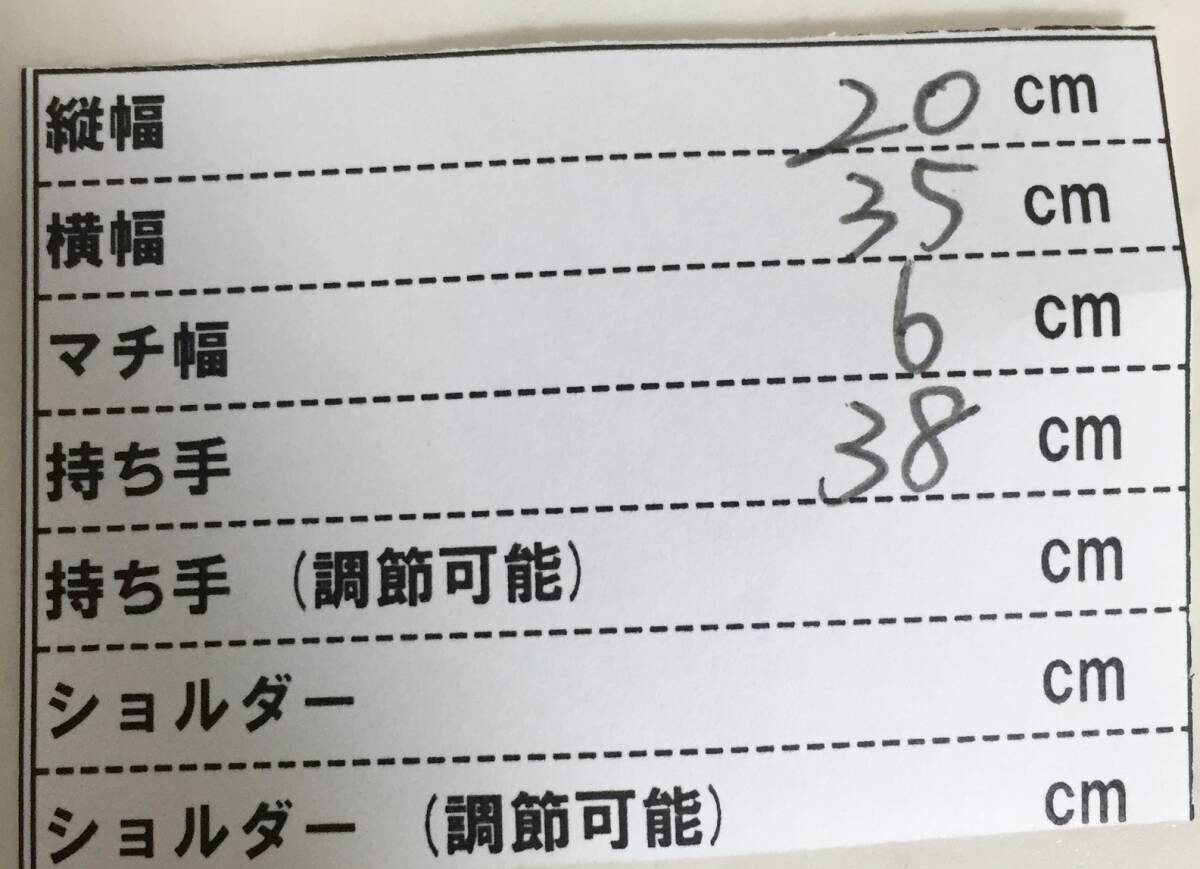 縦幅 20 cm
横幅 35 cm
マチ幅 6 cm
持ち手 38 cm
持ち手 (調節可能) cm
ショルダー cm
ショルダー (調節可能) cm